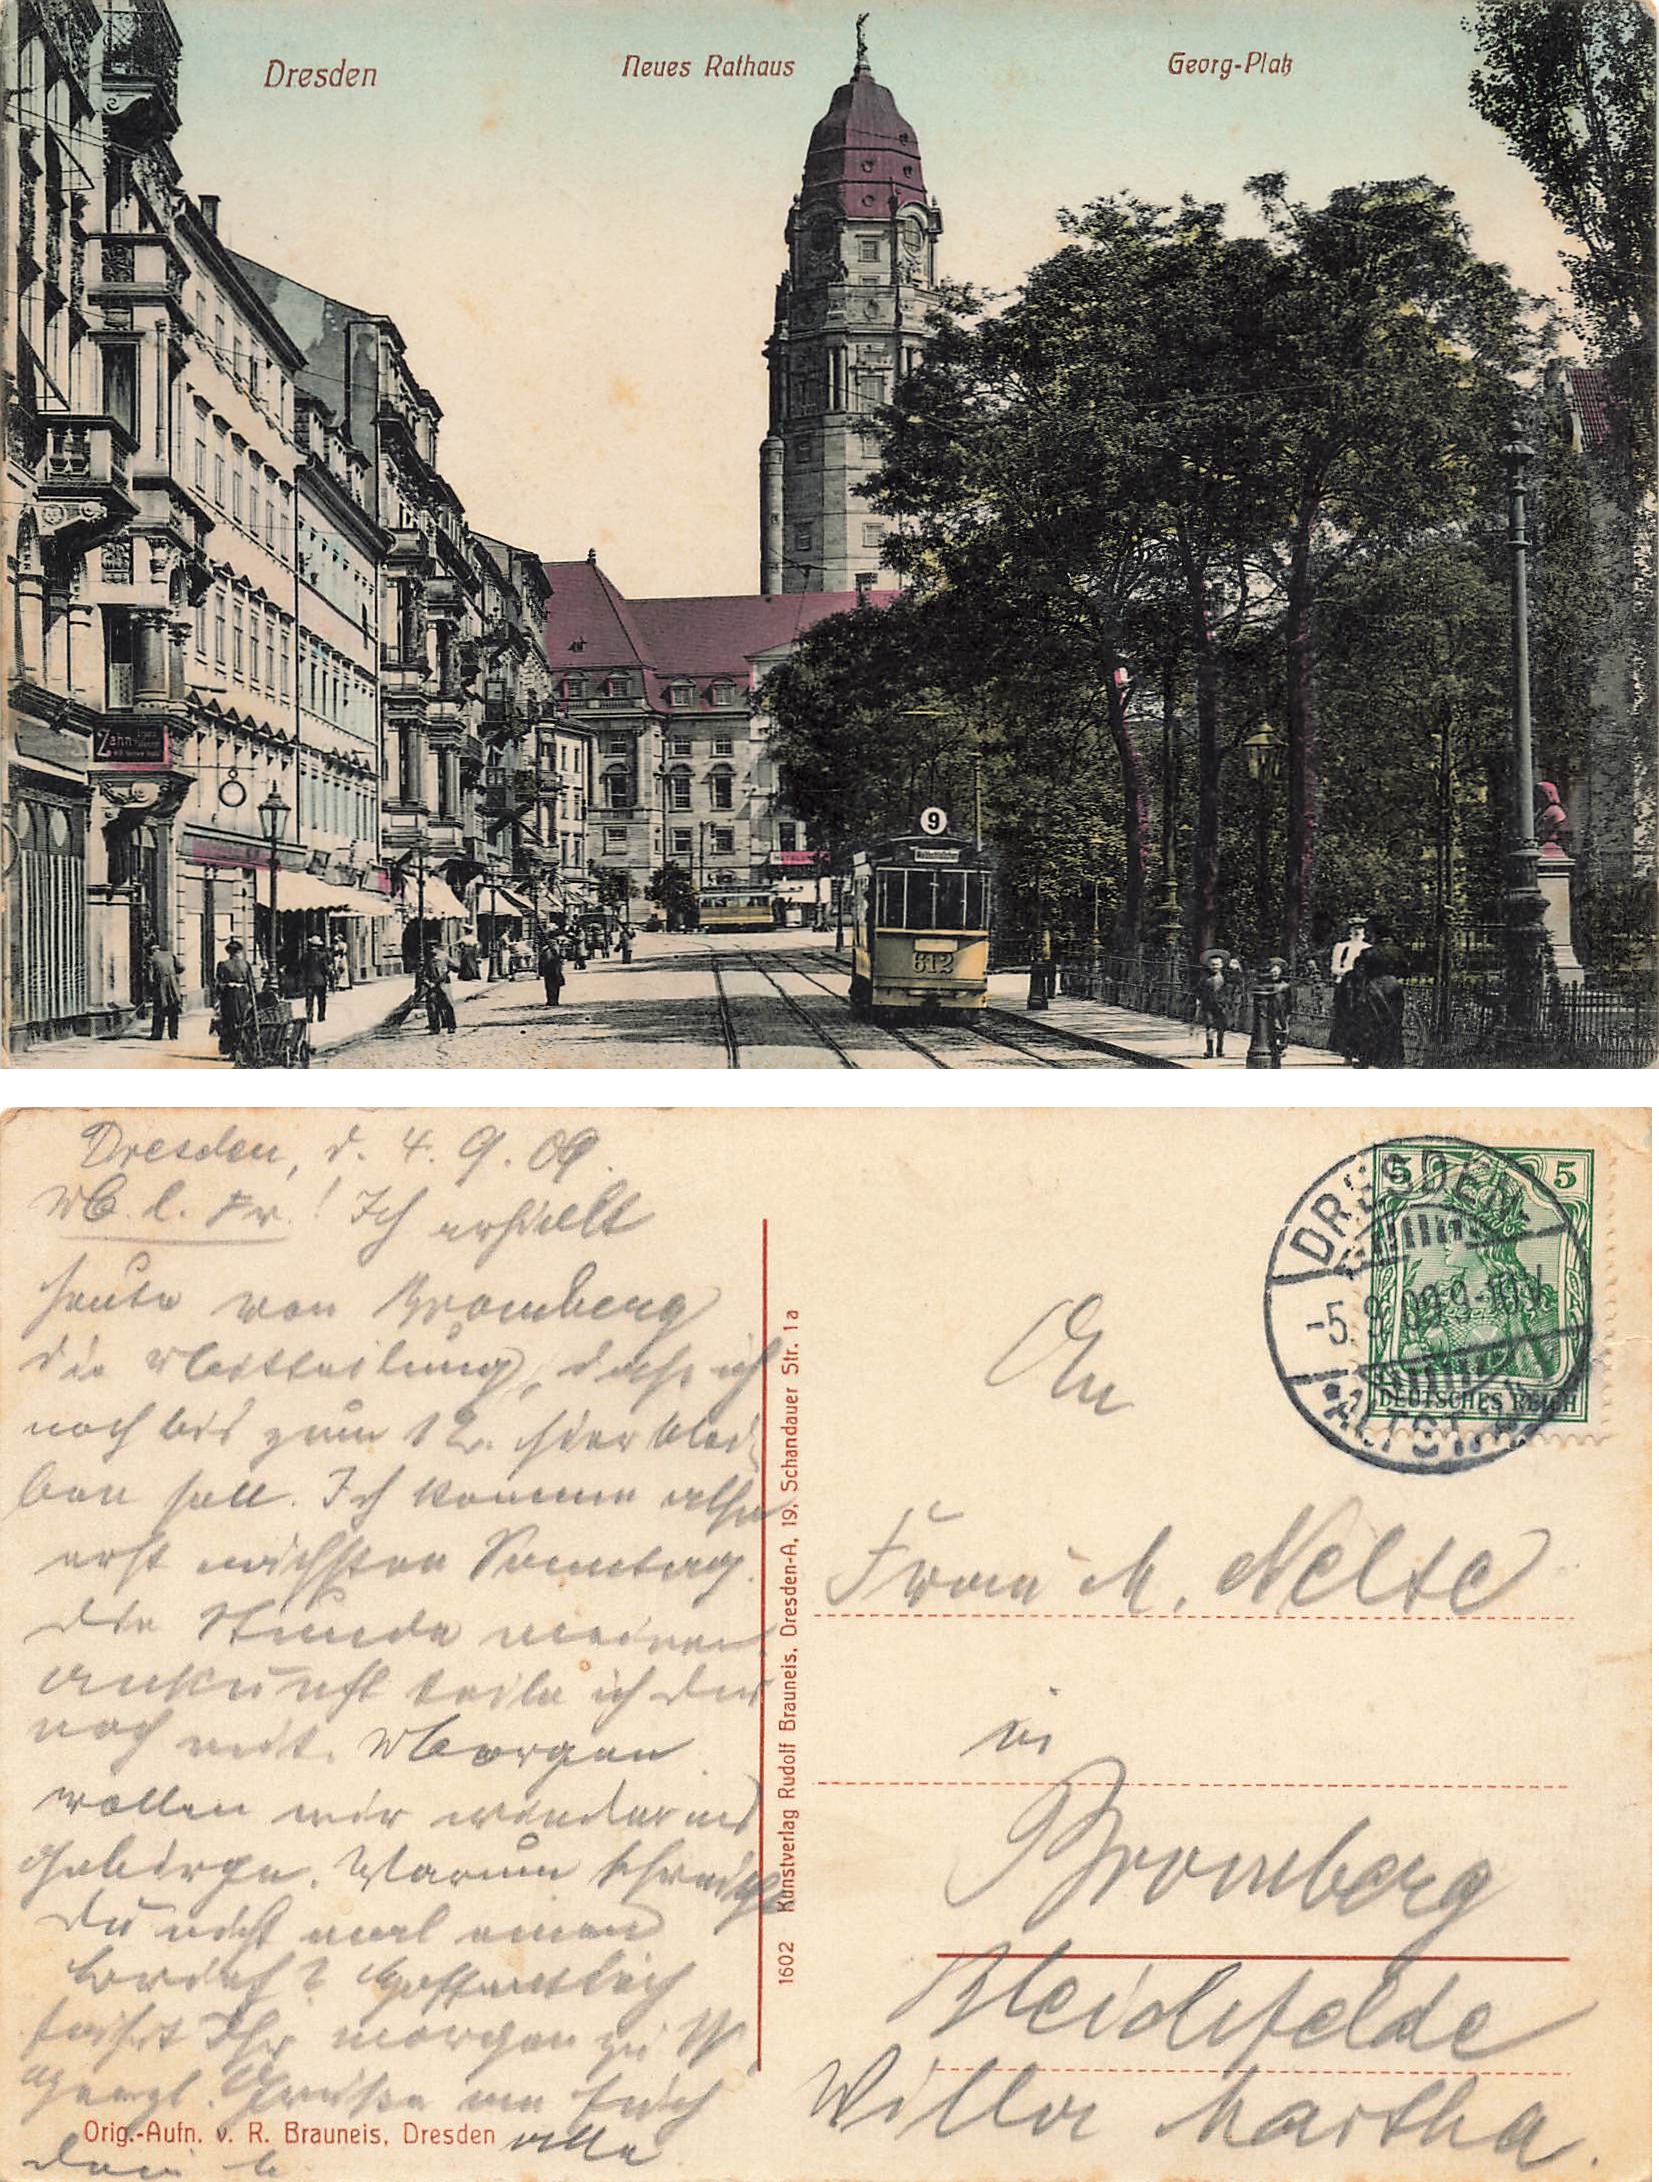 Dresden
Neues Rathaus
Georg-Platz
Zahn-
9
612
Dresden, d. 4. 9. 09.
M. l. Fr.! Ich erhielt
heute von Bromberg
die Mitteilung, dass ich
noch bis zum 12. hier blei-
ben soll. Ich komme also
erst nächsten Sonntag.
Die Stunde meiner
Ankunft teile ich Dir
noch mit. Morgen
wollen wir wieder ins
Gebirge. Warum schreibst
Du nicht mal einen
Brief? Hoffentlich
fahrt Ihr morgen zu
herzl. Grüße an Euch
alle
Dein
Orig.-Aufn. v. R. Brauneis, Dresden
1602 Kunstverlag Rudolf Brauneis, Dresden-A, 19, Schandauer Str. 1a
DRESDEN
-5.9.09.9-10V.
*ALTST.
5 5
DEUTSCHES REICH
An
Frau M. Nelte
in
Bromberg
Bleichfelde
Villa Martha.